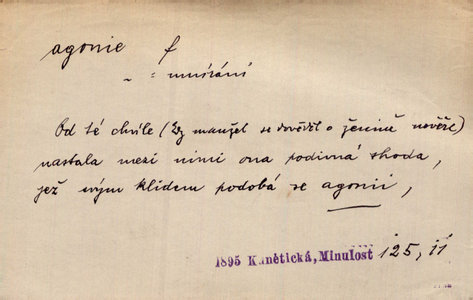 agonie f
~ = umírání
Od té chvíle (kdy manžel se dověděl o ženině nevěře)
nastala mezi nimi ona podivná shoda,
jež svým klidem podobá se agonii,
1895 Kunětická, Minulost 125, II